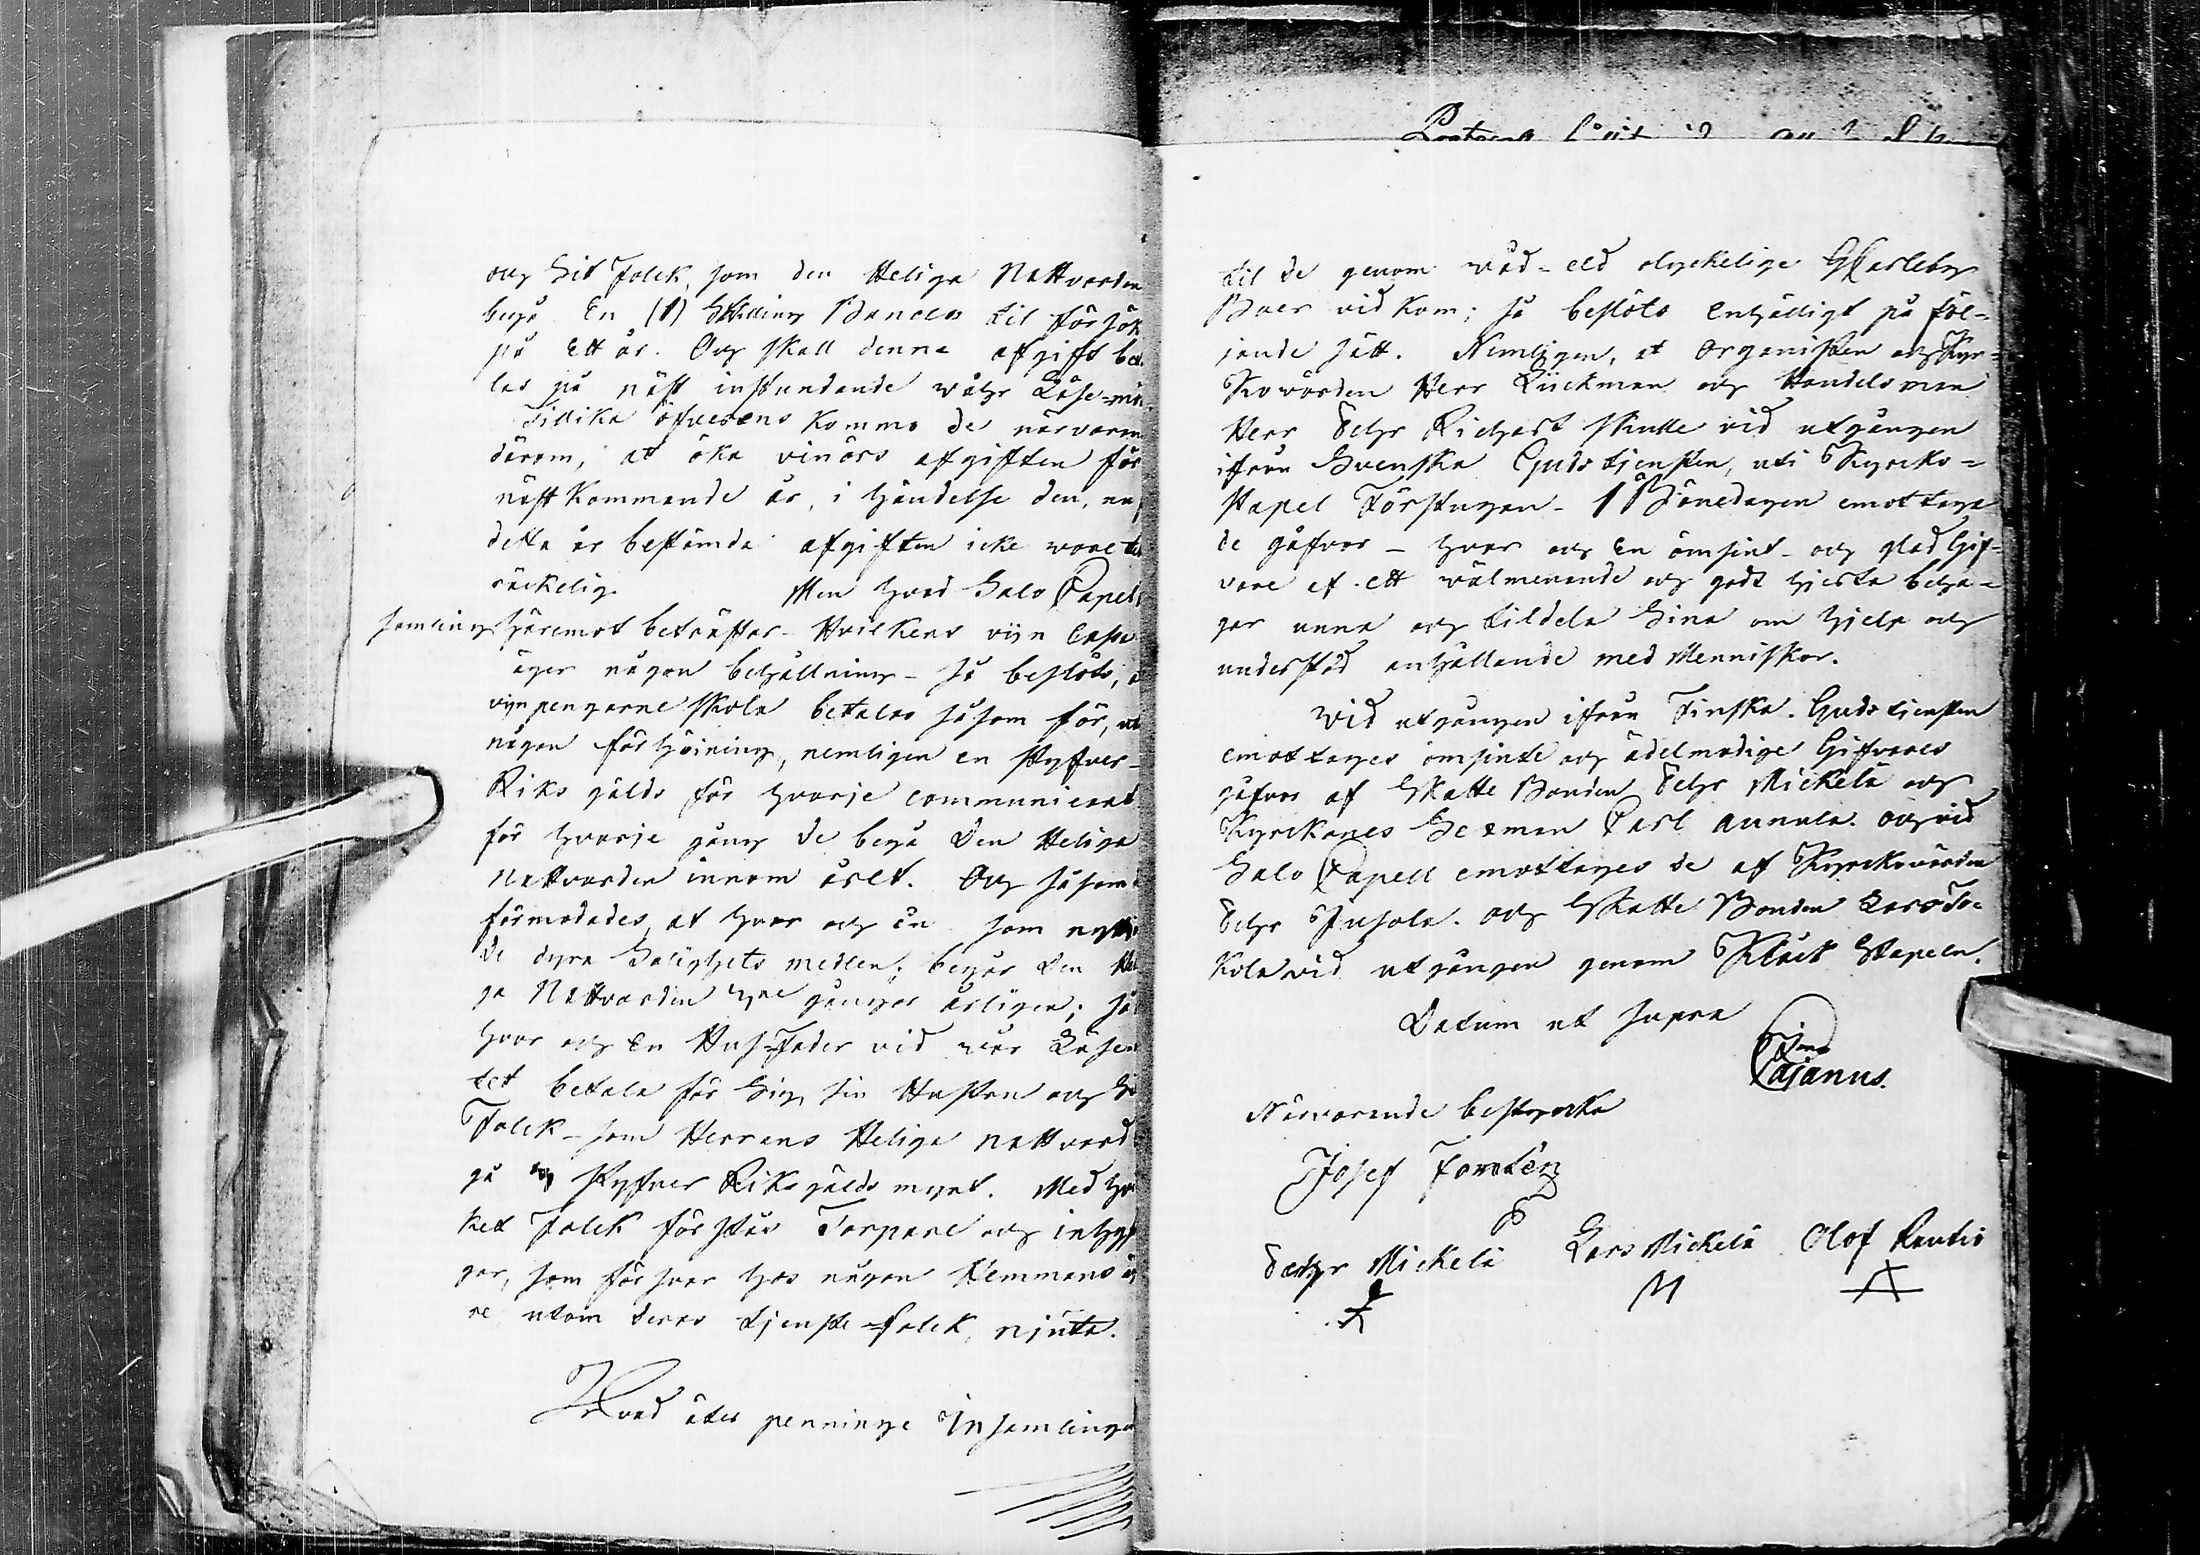 och Sit Folck, som den Heliga Nattvarden
begå En (1) Skilling Banco til försök
på Ett år. Och skall denna afgift beta
las på näst instundande wåhr Läse-mö
Tillika öfverens kommo de närvaran
därom, at öka vinörs afgiften för
näst kommande år, i händelse den, nu
detta år bestämda afgiften icke vore til
räckelig. Men hvad Salo Capels
samling häremot beträffar – Hvilkens vijn Cassa
äger någon behållning – så beslöts, a
vijnpengarne skola betalas såsom för, ut
någon förhöining, nemligen en styfver –
Riks gälds för hvarje communicant
för hvarje gång de begå Den Heliga
Nattvarden innom året. Och såsom
förmodades, at hvar och en som nyttj
de dyra Salighets medlen, begår den He
ga Nattvarden gånger årligen; så
hvar och En Hus-Fader vid wår Läse
tet betala för Sig, sin Hustru och Si
Folck – som Herrans Heliga nattvard
gå styfver Riksgälds mynt. Med hvi
ket Folck förstås Torpare och inhys
gar, som försvar hos någon Hemmans äg
re utom deras tjenste-folck, njuta.
Hvad åter penninge Insamlingen
til de genom wåd-eld olyckelige GCarleby
Boer vidkom; så beslöts Enhälligt på föl-
jande sätt. Nemligen, at Organisten och Kyr-
kowärden Herr Lückman och Handelsman
Herr Eric Richart skulle vid utgången
ifrån Svenska Gudstjensten, uti Kyrko-
stapel Förstugan 1 Bönedagen emottaga
de gåfvor – hvar och En ömsint och glad Gif-
vare af ett wälmenande och godt hjerta beha-
gar unna och tildela Sina om hjelp och
understöd anhållande med Menniskor.
Wid utgången ifrån Finska Gudstjensten
emottages ömsinte och ädelmodige Gifvares
gåfvor af Skatte Bonden Eric Mickelä och
Kyrckones Sexman Carl Annala. och vid
Salo Capell emottages de af Kyrkowärden
Eric Jusola. och Skatte Bonden Lars To-
kola vid utgången genom Klåck Stapeln.
Datum ut supra
Cajanus.
Närvarande bestyrcka
Josef Forstén
Eric Mickelä Lars Mickelä Olof Rautio
M A